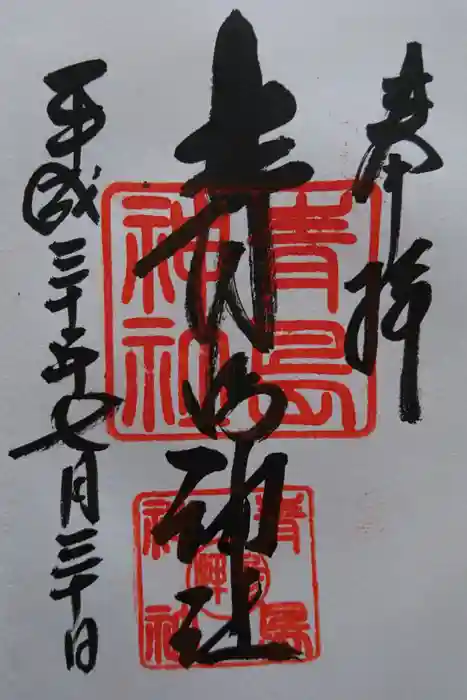 奉拝
青島神社
平成三十年七月三十日
青島
神社
青島
神社